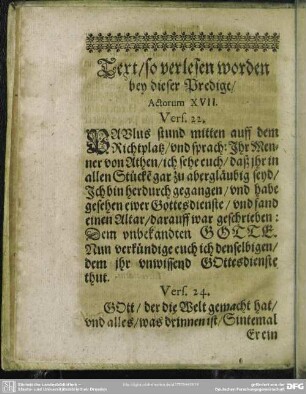 Text/ so verlesen worden
bey dieser Predige/
Actorum XVII.
Vers. 22.
PAVlus stund mitten auff dem
Richtplatz/ vnd sprach: Jhr Men-
ner von Athen/ ich sehe euch/ daß jhr in
allen Stückē gar zu abergläubig seyd/
Jch bin herdurch gegangen/ vnd habe
gesehen ewer Gottesdienste/ vnd fand
einen Altar/ darauff war geschrieben:
Dem vnbekandten GOTTE.
Nun verkündige euch ich denselbigen/
dem jhr vnwissend GOttesdienste
thut.
Vers. 24.
GOtt/ der die Welt gemacht hat/
vnd alles/ was drinnen ist/ Sintemal
Er ein
DFG